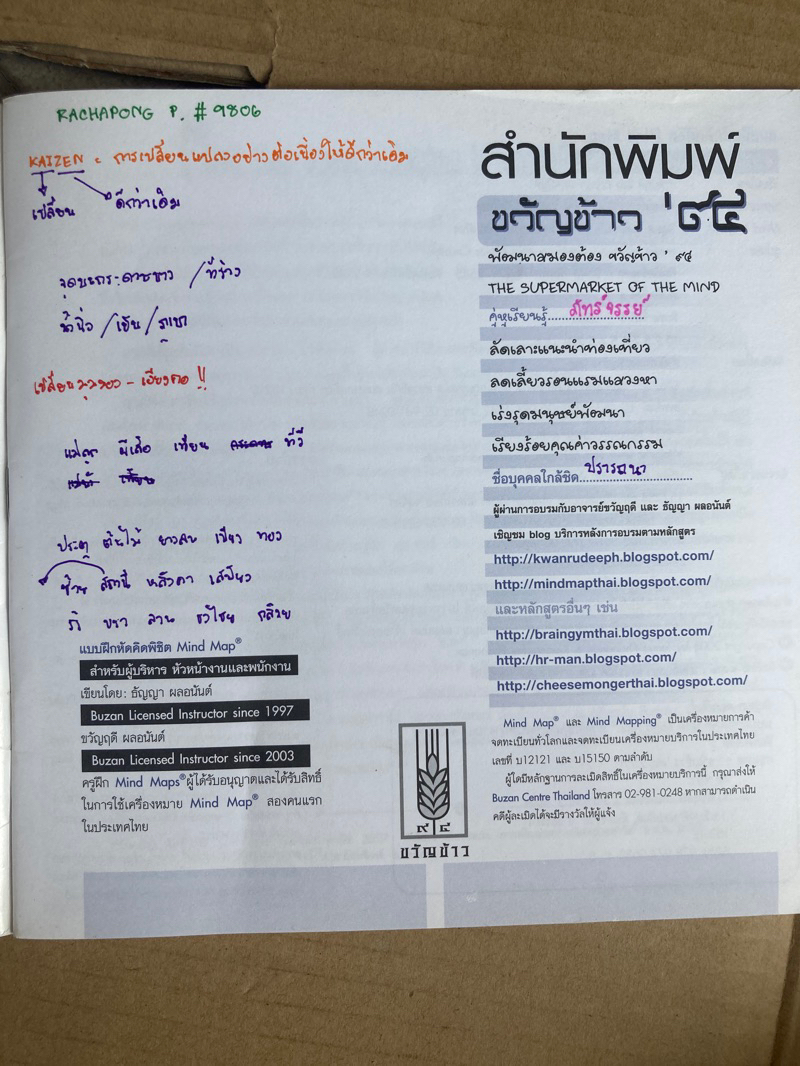 RACHAPONG P. # 9806
KAIZEN = การเปลี่ยนแปลงอย่างต่อเนื่องให้ดีกว่าเดิม
เปลี่ยน ดีกว่าเดิม
จุดบนกระดาษขาว / ที่ว่าง
นิ้ว / เข็น /
เปลี่ยนมุมมอง - เอียงคอ !!
แม่ ผีเสื้อ เทียน ทีวี
ประตู ต้นไม้ ยางลบ เขียว ทอง
บ้าน สถานี หลังคา เสบียง
ขา ลาน กล้วย
แบบฝึกหัดคิดพิชิต Mind Map®
สำหรับผู้บริหาร หัวหน้างานและพนักงาน
เขียนโดย: ธัญญา ผลอนันต์
Buzan Licensed Instructor since 1997
ขวัญฤดี ผลอนันต์
Buzan Licensed Instructor since 2003
ครูฝึก Mind Maps®ผู้ได้รับอนุญาตและได้รับสิทธิ์
ในการใช้เครื่องหมาย Mind Map® สองคนแรก
ในประเทศไทย
สำนักพิมพ์
ขวัญข้าว '๙๔
พัฒนาสมองต้อง ขวัญข้าว ' ๙๔
THE SUPERMARKET OF THE MIND
คู่หูเรียนรู้..........ภัทร์จรรย์
ลัดเลาะแนะนำท่องเที่ยว
ลดเลี้ยวรอนแรมแสวงหา
เร่งรุดมนุษย์พัฒนา
เรียงร้อยคุณค่าวรรณกรรม
ชื่อบุคคลใกล้ชิด..........ปรารถนา
ผู้ผ่านการอบรมกับอาจารย์ขวัญฤดี และ ธัญญา ผลอนันต์
เชิญชม blog บริการหลังการอบรมตามหลักสูตร
http://kwanrudeeph.blogspot.com/
http://mindmapthai.blogspot.com/
และหลักสูตรอื่นๆ เช่น
http://braingymthai.blogspot.com/
http://hr-man.blogspot.com/
http://cheesemongerthai.blogspot.com/
Mind Map® และ Mind Mapping® เป็นเครื่องหมายการค้า
จดทะเบียนทั่วโลกและจดทะเบียนเครื่องหมายบริการในประเทศไทย
เลขที่ บ12121 และ บ15150 ตามลำดับ
ผู้ใดมีหลักฐานการละเมิดสิทธิ์ในเครื่องหมายบริการนี้ กรุณาส่งให้
Buzan Centre Thailand โทรสาร 02-981-0248 หากสามารถดำเนิน
คดีผู้ละเมิดได้จะมีรางวัลให้ผู้แจ้ง
๙ ๔
ขวัญข้าว